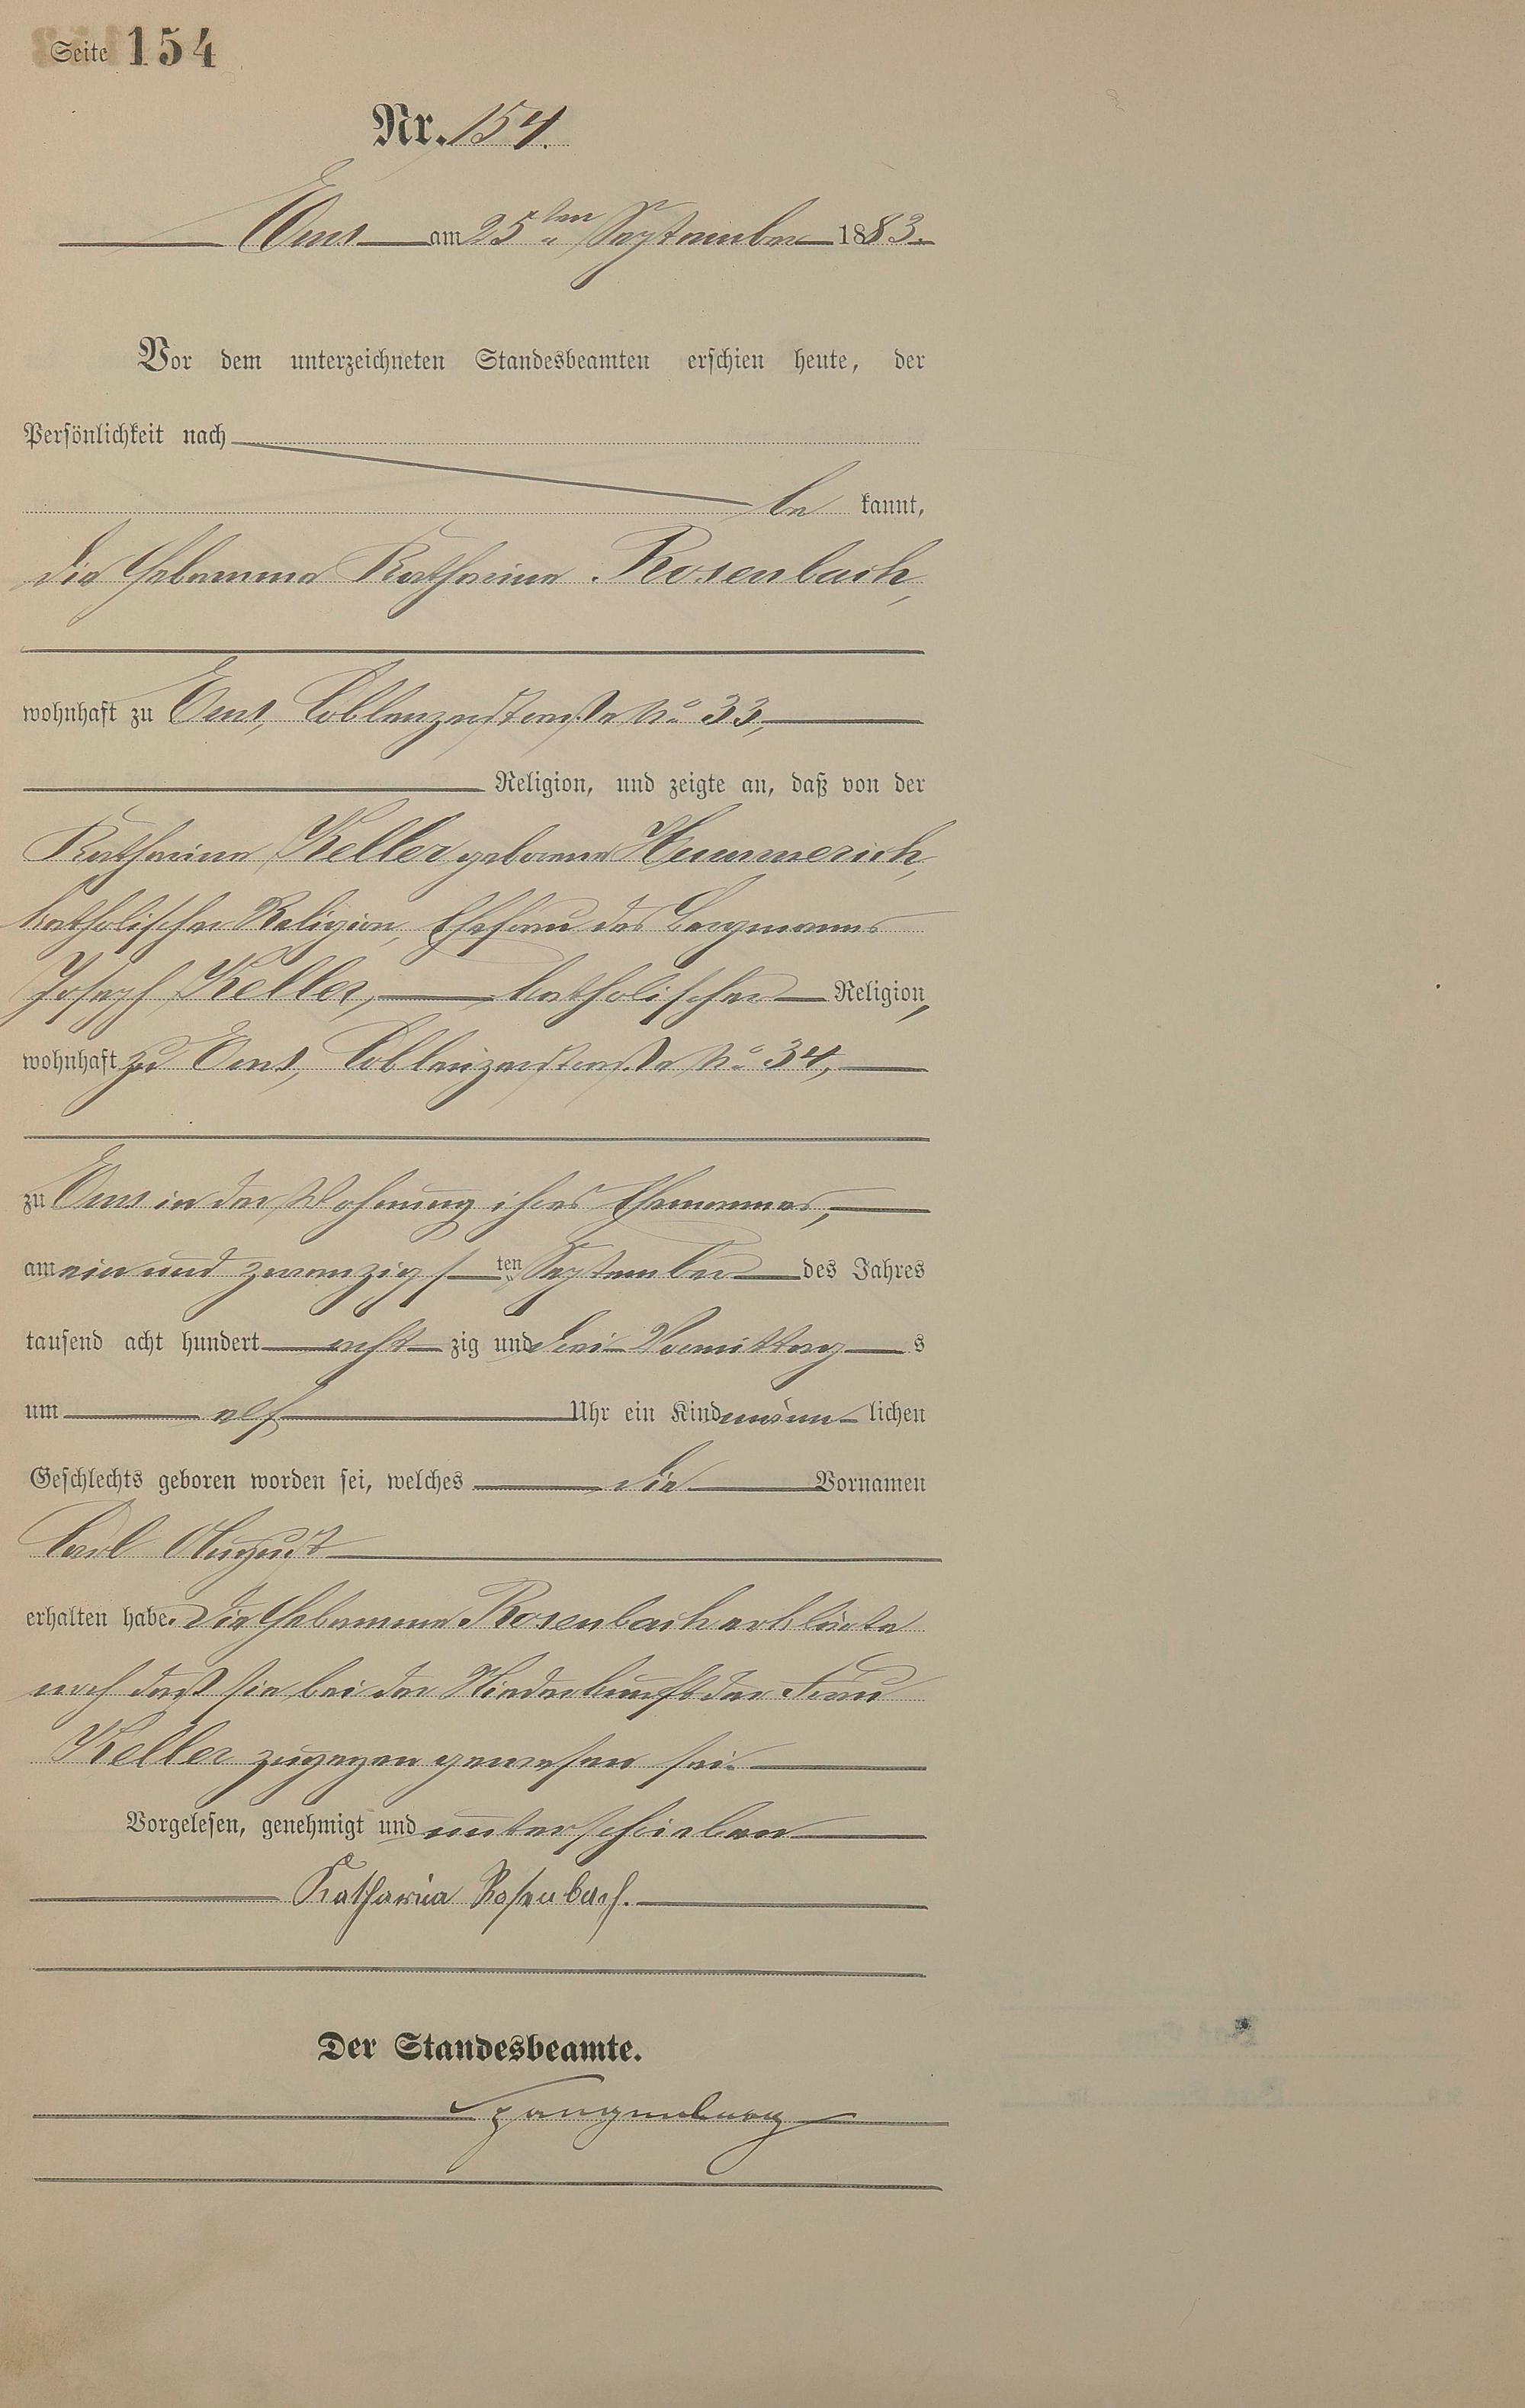 Seite 154
Nr. 154.
Ems am 25ten September 1883.
Vor dem unterzeichneten Standesbeamten erschien heute, der
Persönlichkeit nach
be kannt,
die Hebamme Katharina Rosenbach,
wohnhaft zu Ems, Coblenzerstraße No 33,
Religion, und zeigte an, daß von der
Katharina Keller geborene Hemmerich,
katholischer Religion, Ehefrau des Bergmanns
Joseph Keller, katholischer Religion,
wohnhaft zu Ems, Coblenzerstraße No 34,
zu Ems in der Wohnung ihres Ehemannes,
am ein und zwanzigsten September des Jahres
tausend acht hundert acht zig und drei Vormittag s
um elf Uhr ein Kind männ lichen
Geschlechts geboren worden sei, welches die Vornamen
Carl August
erhalten habe. Die Hebamme Rosenbach erklärte
noch daß sie bei der Niederkunft der Frau
Keller zugegen gewesen sei.
Vorgelesen, genehmigt und unterschrieben
Katharina Rosenbach.
Der Standesbeamte.
Spangenberg